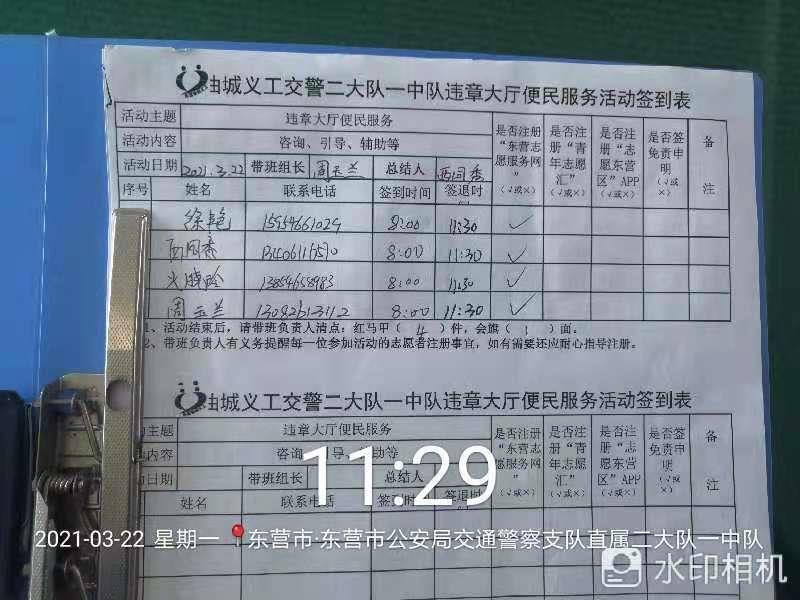 油城义工交警二大队一中队违章大厅便民服务活动签到表
活动主题 违章大厅便民服务 是否注册“东营志愿服务网”(√或×) 是否注册“青年志愿汇”(√或×) 是否注册“志愿东营区”APP(√或×) 是否签免责申明(√或×) 备注
活动内容 咨询、引导、辅助等
活动日期 2021.3.22 带班组长 周玉兰 总结人
序号 姓名 联系电话 签到时间 签退时间
徐艳 15954661029 8:00 11:30 √
8:00 11:30 √
13854658983 8:00 11:30 √
周玉兰 8:00 11:30 √
1、活动结束后，请带班负责人清点：红马甲（4）件，会旗（1）面。
2、带班负责人有义务提醒每一位参加活动的志愿者注册事宜，如有需要还应耐心指导注册。
油城义工交警二大队一中队违章大厅便民服务活动签到表
主题 违章大厅便民服务 是否注册“东营志愿服务网”(√或×) 是否注册“青年志愿汇”(√或×) 是否注册“志愿东营区”APP(√或×) 是否签免责申明(√或×) 备注
内容 咨询、引导、辅助等
日期 带班组长 总结人
姓名 联系电话 签到时间 签退时
11:29
2021-03-22 星期一 东营市·东营市公安局交通警察支队直属二大队一中队
水印相机